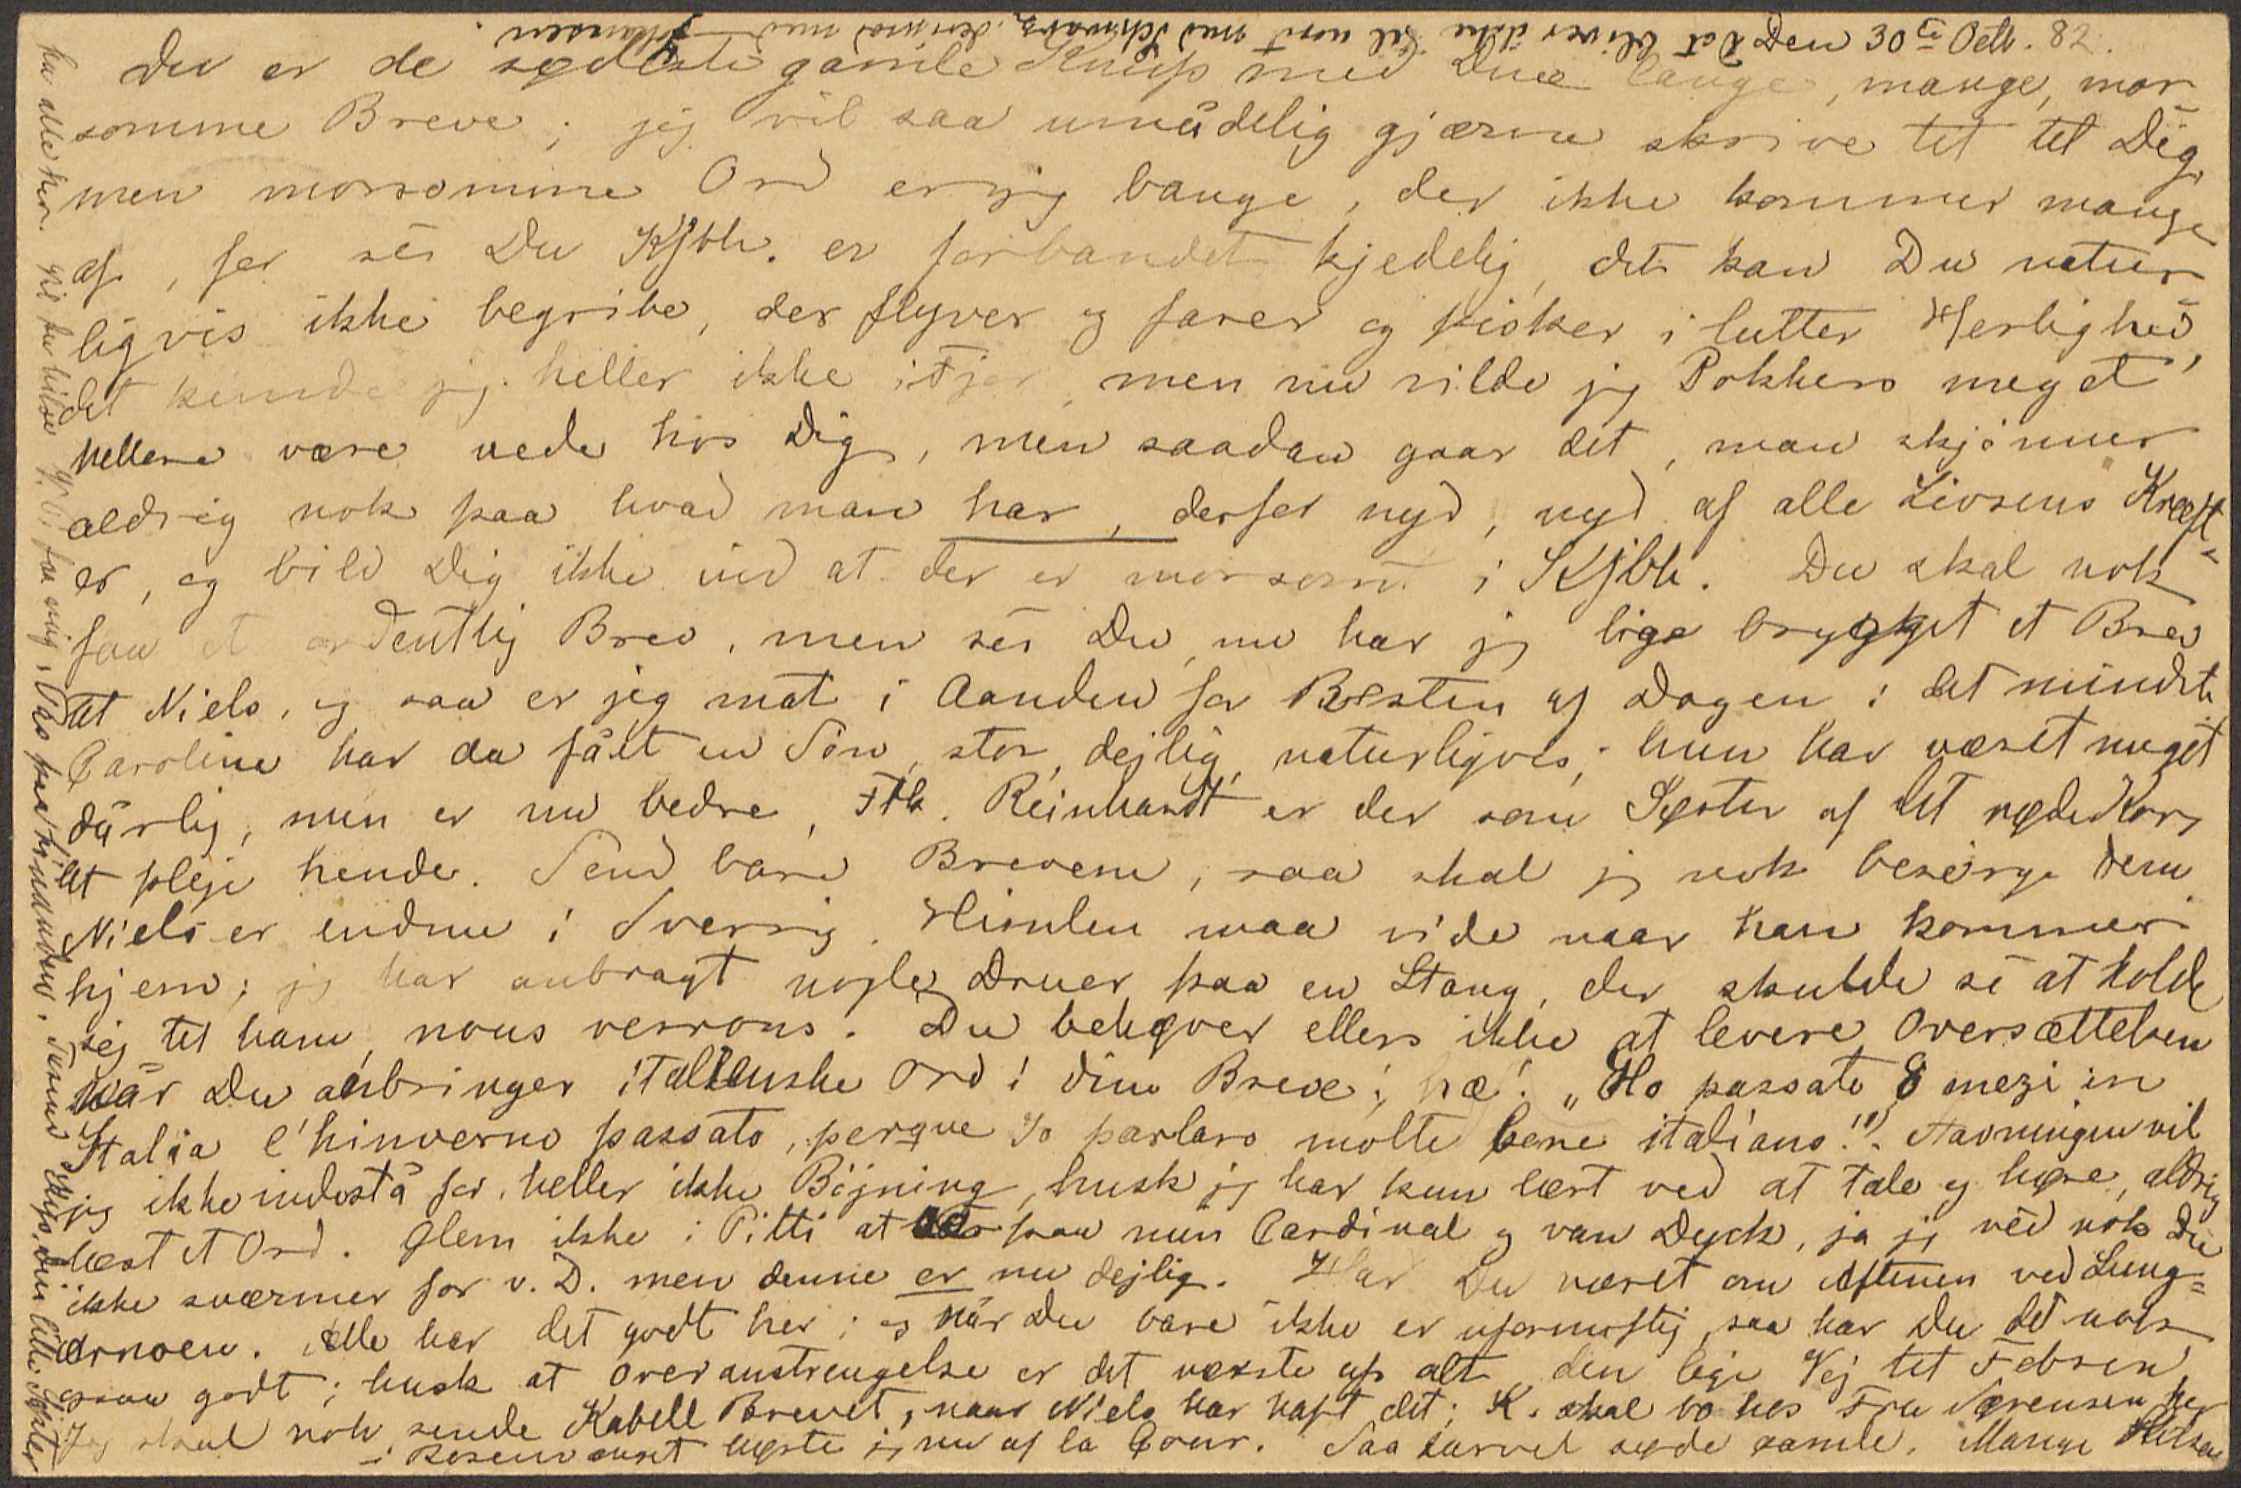 Den 30te Octb. 82.
Du er de sødeste gamle Knups med Dine lange, mange, mor
somme Breve; jeg vil saa umådelig gjærne skrive tit til Dig,
men morsomme Ord er jeg bange, der ikke kommer mange
af, for sér Du Kjbh. er forbandet kjedelig, det kan Du natur
ligvis ikke begribe, der flyver og farer og pisker i lutter Herlighed,
det kunde jeg heller ikke i Fjor, men nu vilde jeg Pokkers meget
hellere være nede hos Dig, men saadan gaar det, man skjønner
aldrig nok paa hvad man har, derfor nyd, nyd af alle Livsens Kræft-
er, og bild Dig ikke ind at der er morsomt i Kjbh. Du skal nok
faa et ordentlig Brev, men sér Du, nu har jeg lige brygget et Brev
til Niels, og saa er jeg mat i Aanden for Resten af Dagen i det mindste
Caroline har da fået en Søn, stor, dejlig, naturligvis; hun har været meget
dårlig, men er nu bedre, Frk. Reinhardt er der som Søster af det røde Kors
at pleje hende. Send bare Brevene, saa skal jeg nok besørge dem
Niels er endnu i Sverrig. Himlen maa vide naar han kommer
hjem; jeg har anbragt nogle Druer paa en Stang, der skulde sé at holde
sig til ham, nous verrons. Du behøver ellers ikke at levere Oversættelsen
når Du anbringer italienske Ord i dine Breve; hæ! „Ho passato 8 mezi in
Italia l'hinverno passato, perque Io parlaro molte bene italiano!" Stavningen vil
jeg ikke indestå for, heller ikke Bøjning, husk jeg har kun lært ved at tale og høre, aldrig
læst et Ord. Glem ikke i Pitti at se paa min Cardinal og van Dyck, ja jeg véd nok Du
ikke sværmer for v. D. men denne er nu dejlig. Har Du været om Aftenen ved Lung-
arnoen. Alle har det godt her; og når Du bare ikke er ufornuftig, saa har Du det nok
godt; husk at Overanstrengelse er det værste af alt, den lige Vej til Febren
Jeg skal nok sende Kabell Brevet, naar Niels har haft det; K. skal bo hos Fru Sørensen her
i Rosenvænget hørte jeg nu af la Cour. Saa Farvel søde gamle. Mange Hilsen
fra alle her. Vil Du hilse for mig. Pas paa Tusind Kys. din lille Søster
Det bliver ikke til noget med Schwartz, derimod med Johansen.